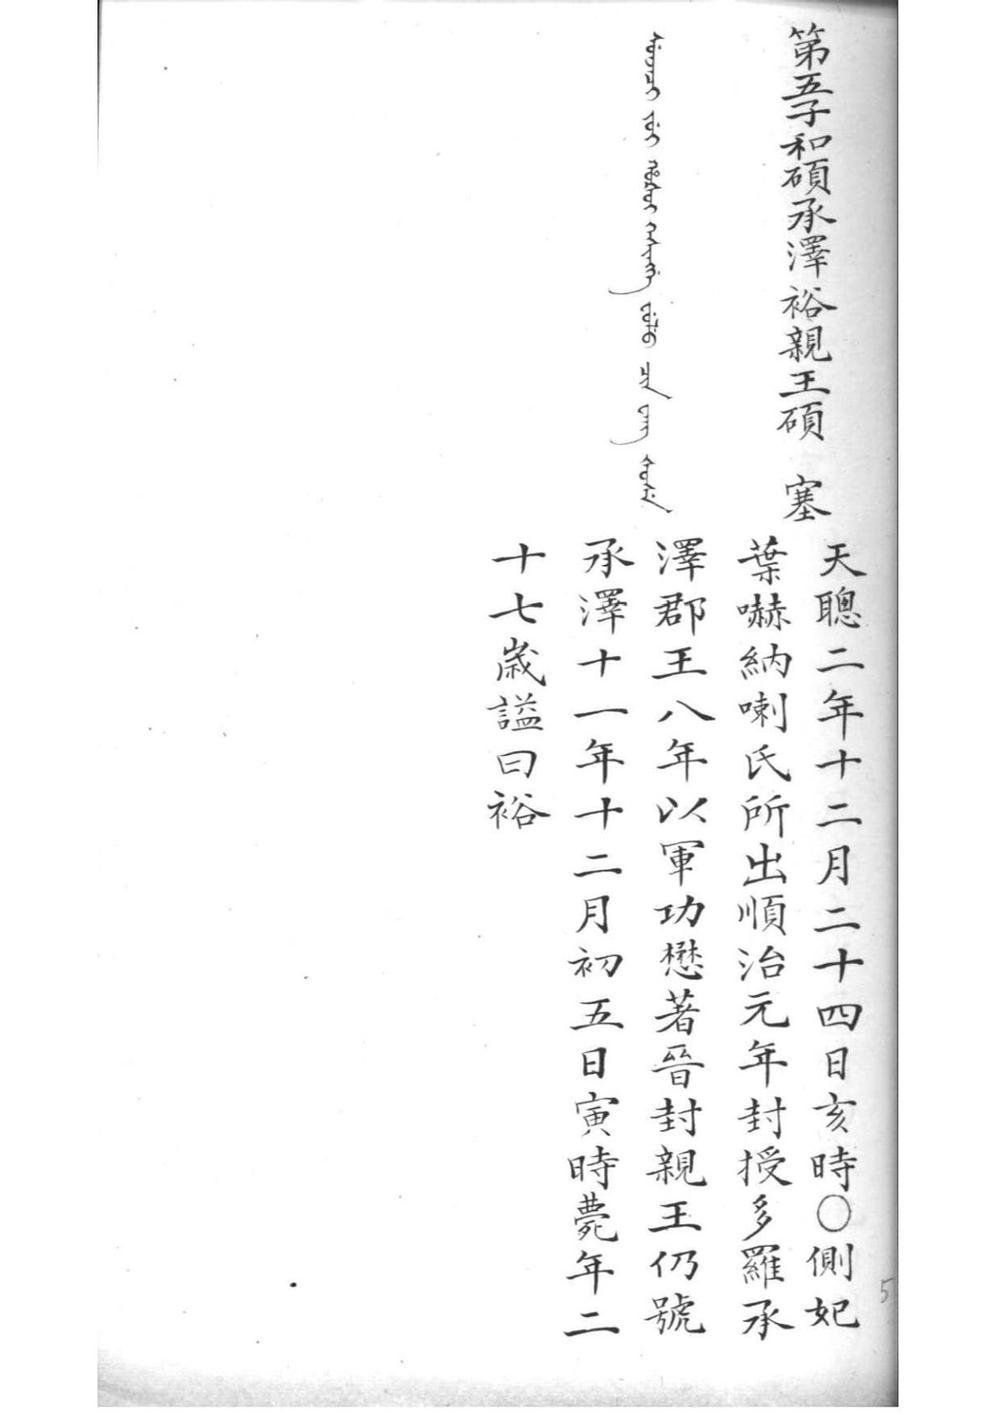 第五子和碩承澤裕親王碩塞
天聰二年十二月二十四日亥時〇側妃
葉嚇納喇氏所出順治元年封授多羅承
澤郡王八年以軍功懋著晉封親王仍號
承澤十一年十二月初五日寅時薨年二
十七歲諡曰裕
5